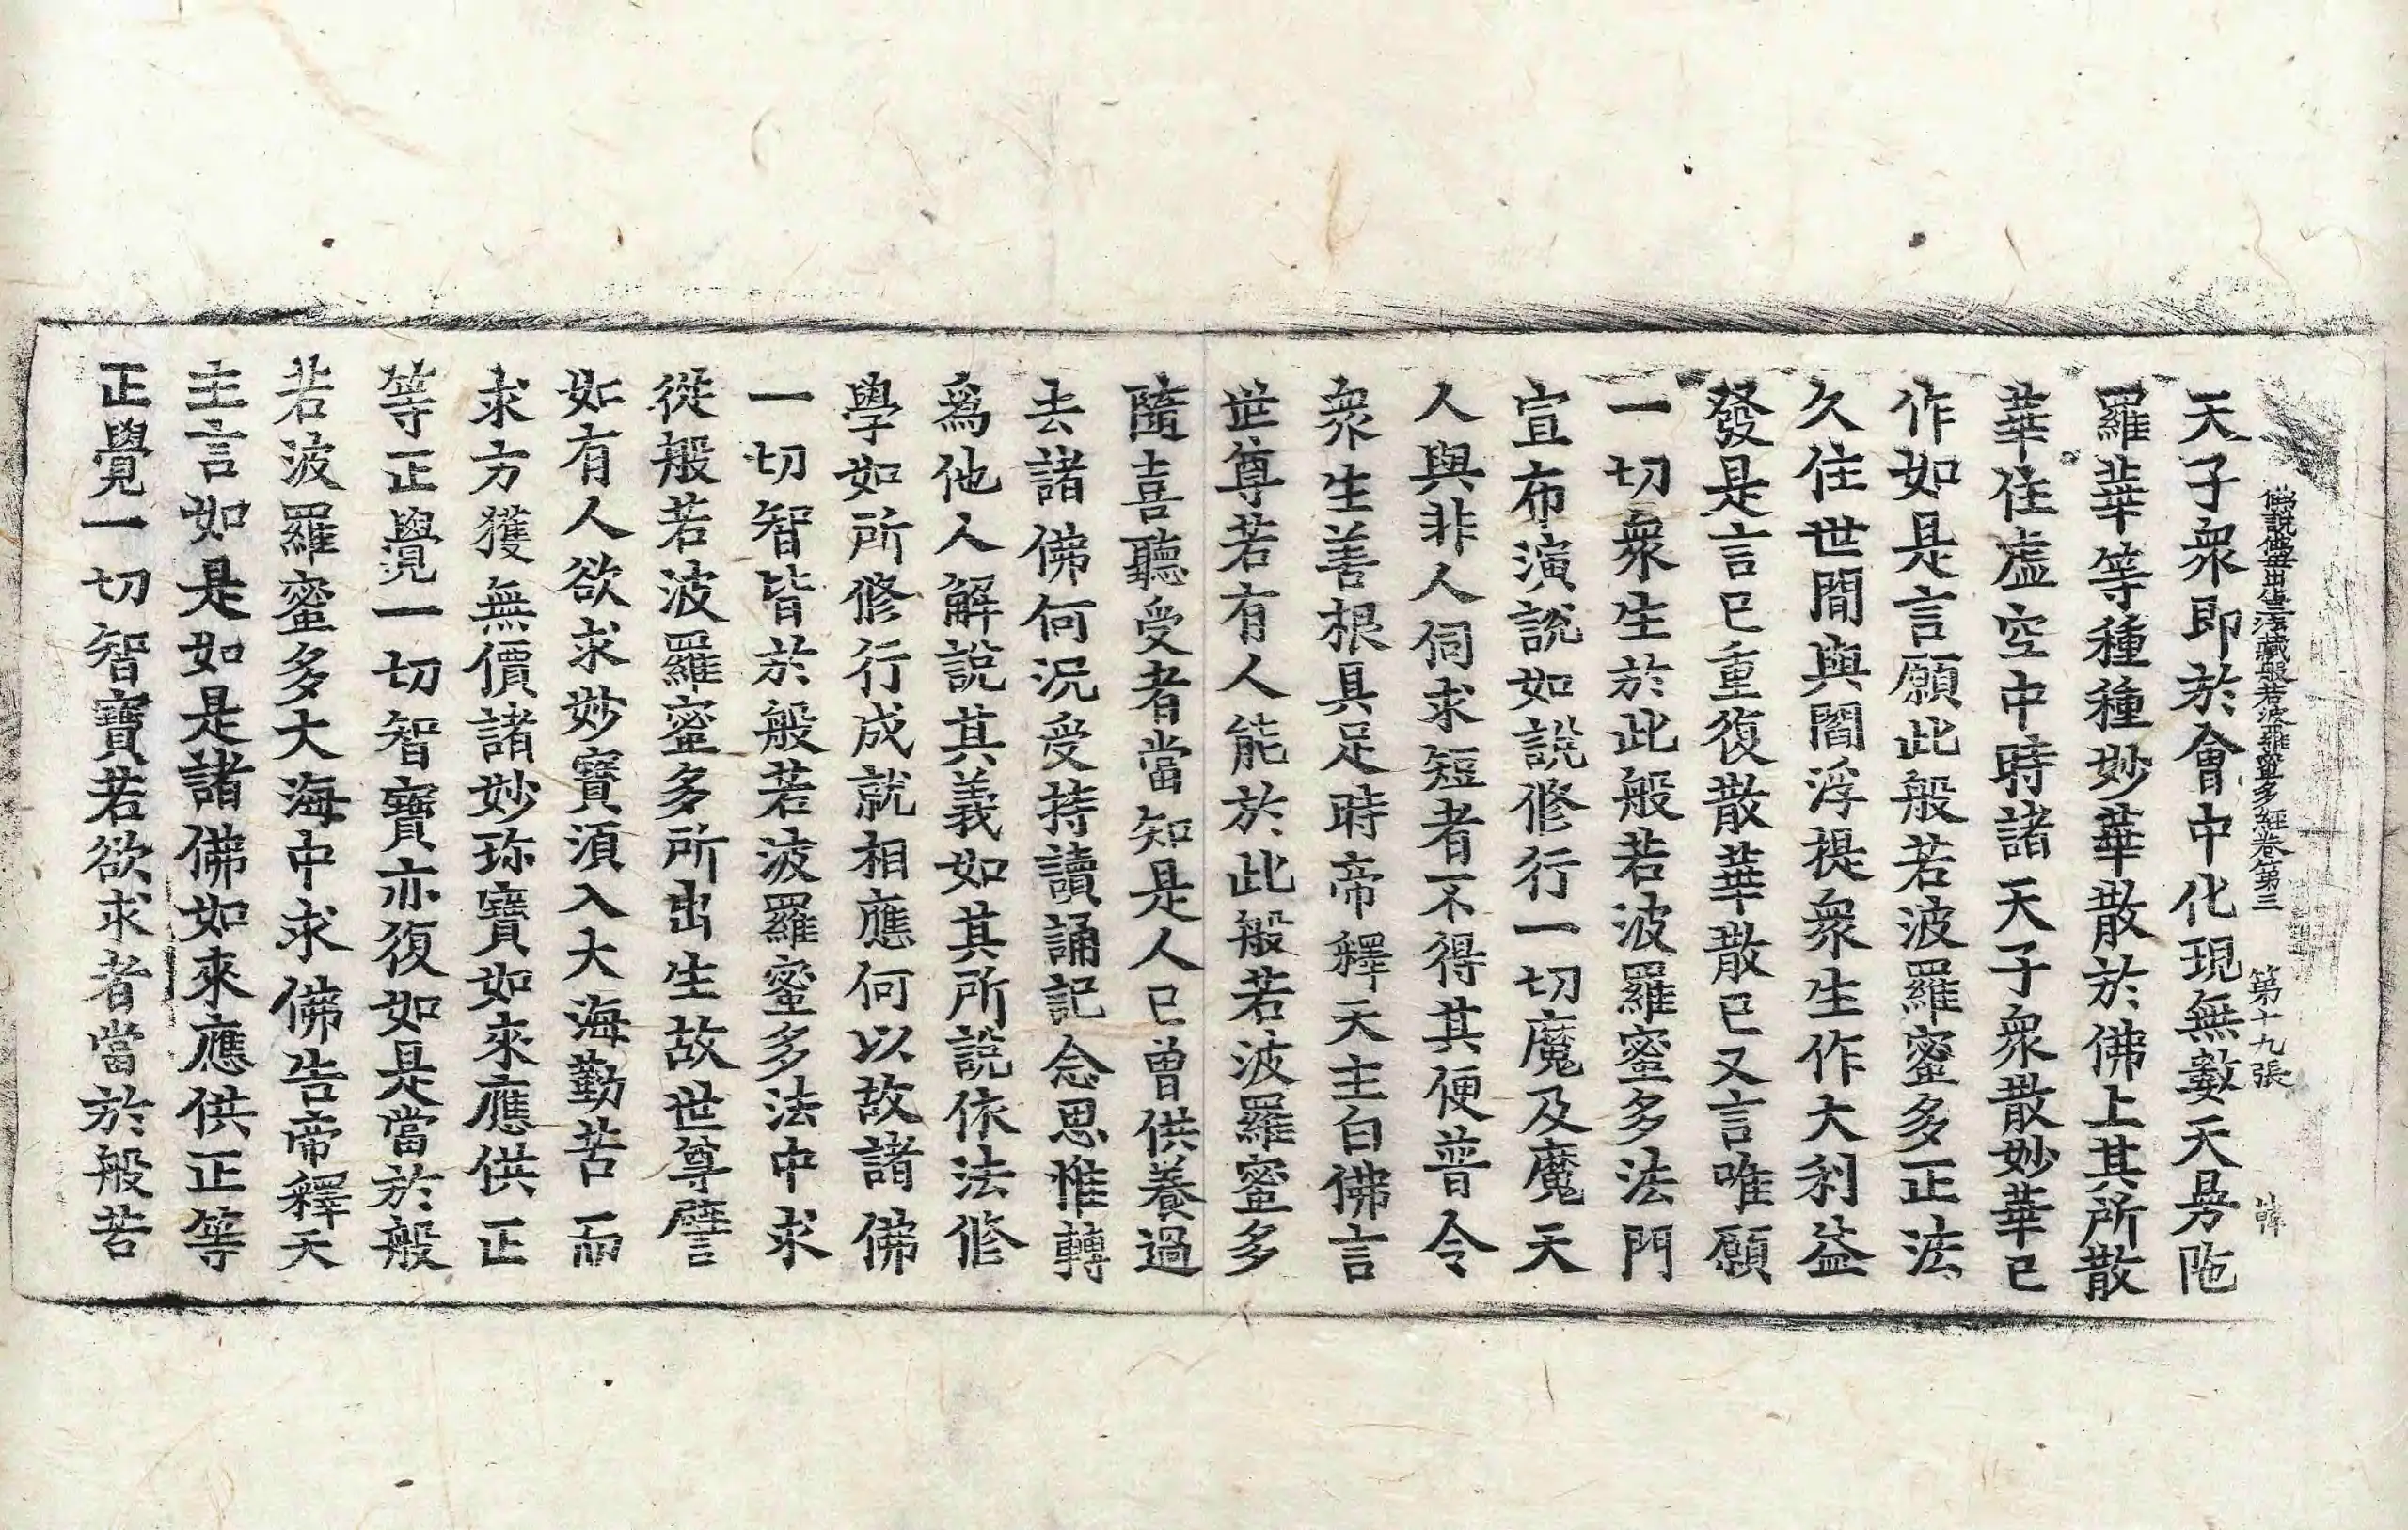 佛說佛母出生法藏般若波羅蜜多經卷第三 第十九張
天子衆即於會中化現無數天曼陁
羅華等種種妙華散於佛上其所散
華住虛空中時諸天子衆散妙華已
作如是言願此般若波羅蜜多正法
久住世間與閻浮提衆生作大利益
發是言已重復散華散已又言唯願
一切衆生於此般若波羅蜜多法門
宣布演說如說修行一切魔及魔天
人與非人伺求短者不得其便普令
衆生善根具足時帝釋天主白佛言
世尊若有人能於此般若波羅蜜多
隨喜聽受者當知是人已曾供養過
去諸佛何況受持讀誦記念思惟轉
爲他人解說其義如其所說依法修
學如所修行成就相應何以故諸佛
一切智皆於般若波羅蜜多法中求
從般若波羅蜜多所出生故世尊譬
如有人欲求妙寶須入大海勤苦而
求方獲無價諸妙珎寶如來應供正
等正覺一切智寶亦復如是當於般
若波羅蜜多大海中求佛告帝釋天
主言如是如是諸佛如來應供正等
正覺一切智寶若欲求者當於般若